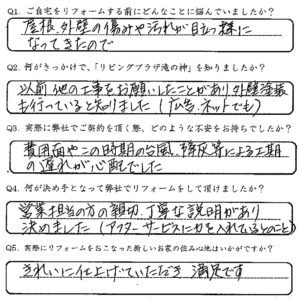 Q1. ご自宅をリフォームする前にどんなことに悩んでいましたか?
屋根、外壁の傷みや汚れが目立つ様に
なってきたので
Q2. 何がきっかけで、「リビングプラザ滝の神」を知りましたか?
以前他の工事をお願いしたことがあり外壁塗装
も行っていると知りました(広告.ネットでも)
Q3. 実際に弊社でご契約を頂く際、どのような不安をお持ちでしたか?
費用面やこの時期の台風、降灰等による工期
の遅れが心配でした
Q4. 何が決め手となって弊社でリフォームをして頂けましたか?
営業担当の方の親切、丁寧な説明があり
決めました(アフターサービスに力を入れているとのこと)
Q5. 実際にリフォームをおこなった新しいお家の住み心地はいかがですか?
きれいに仕上げていただき 満足です